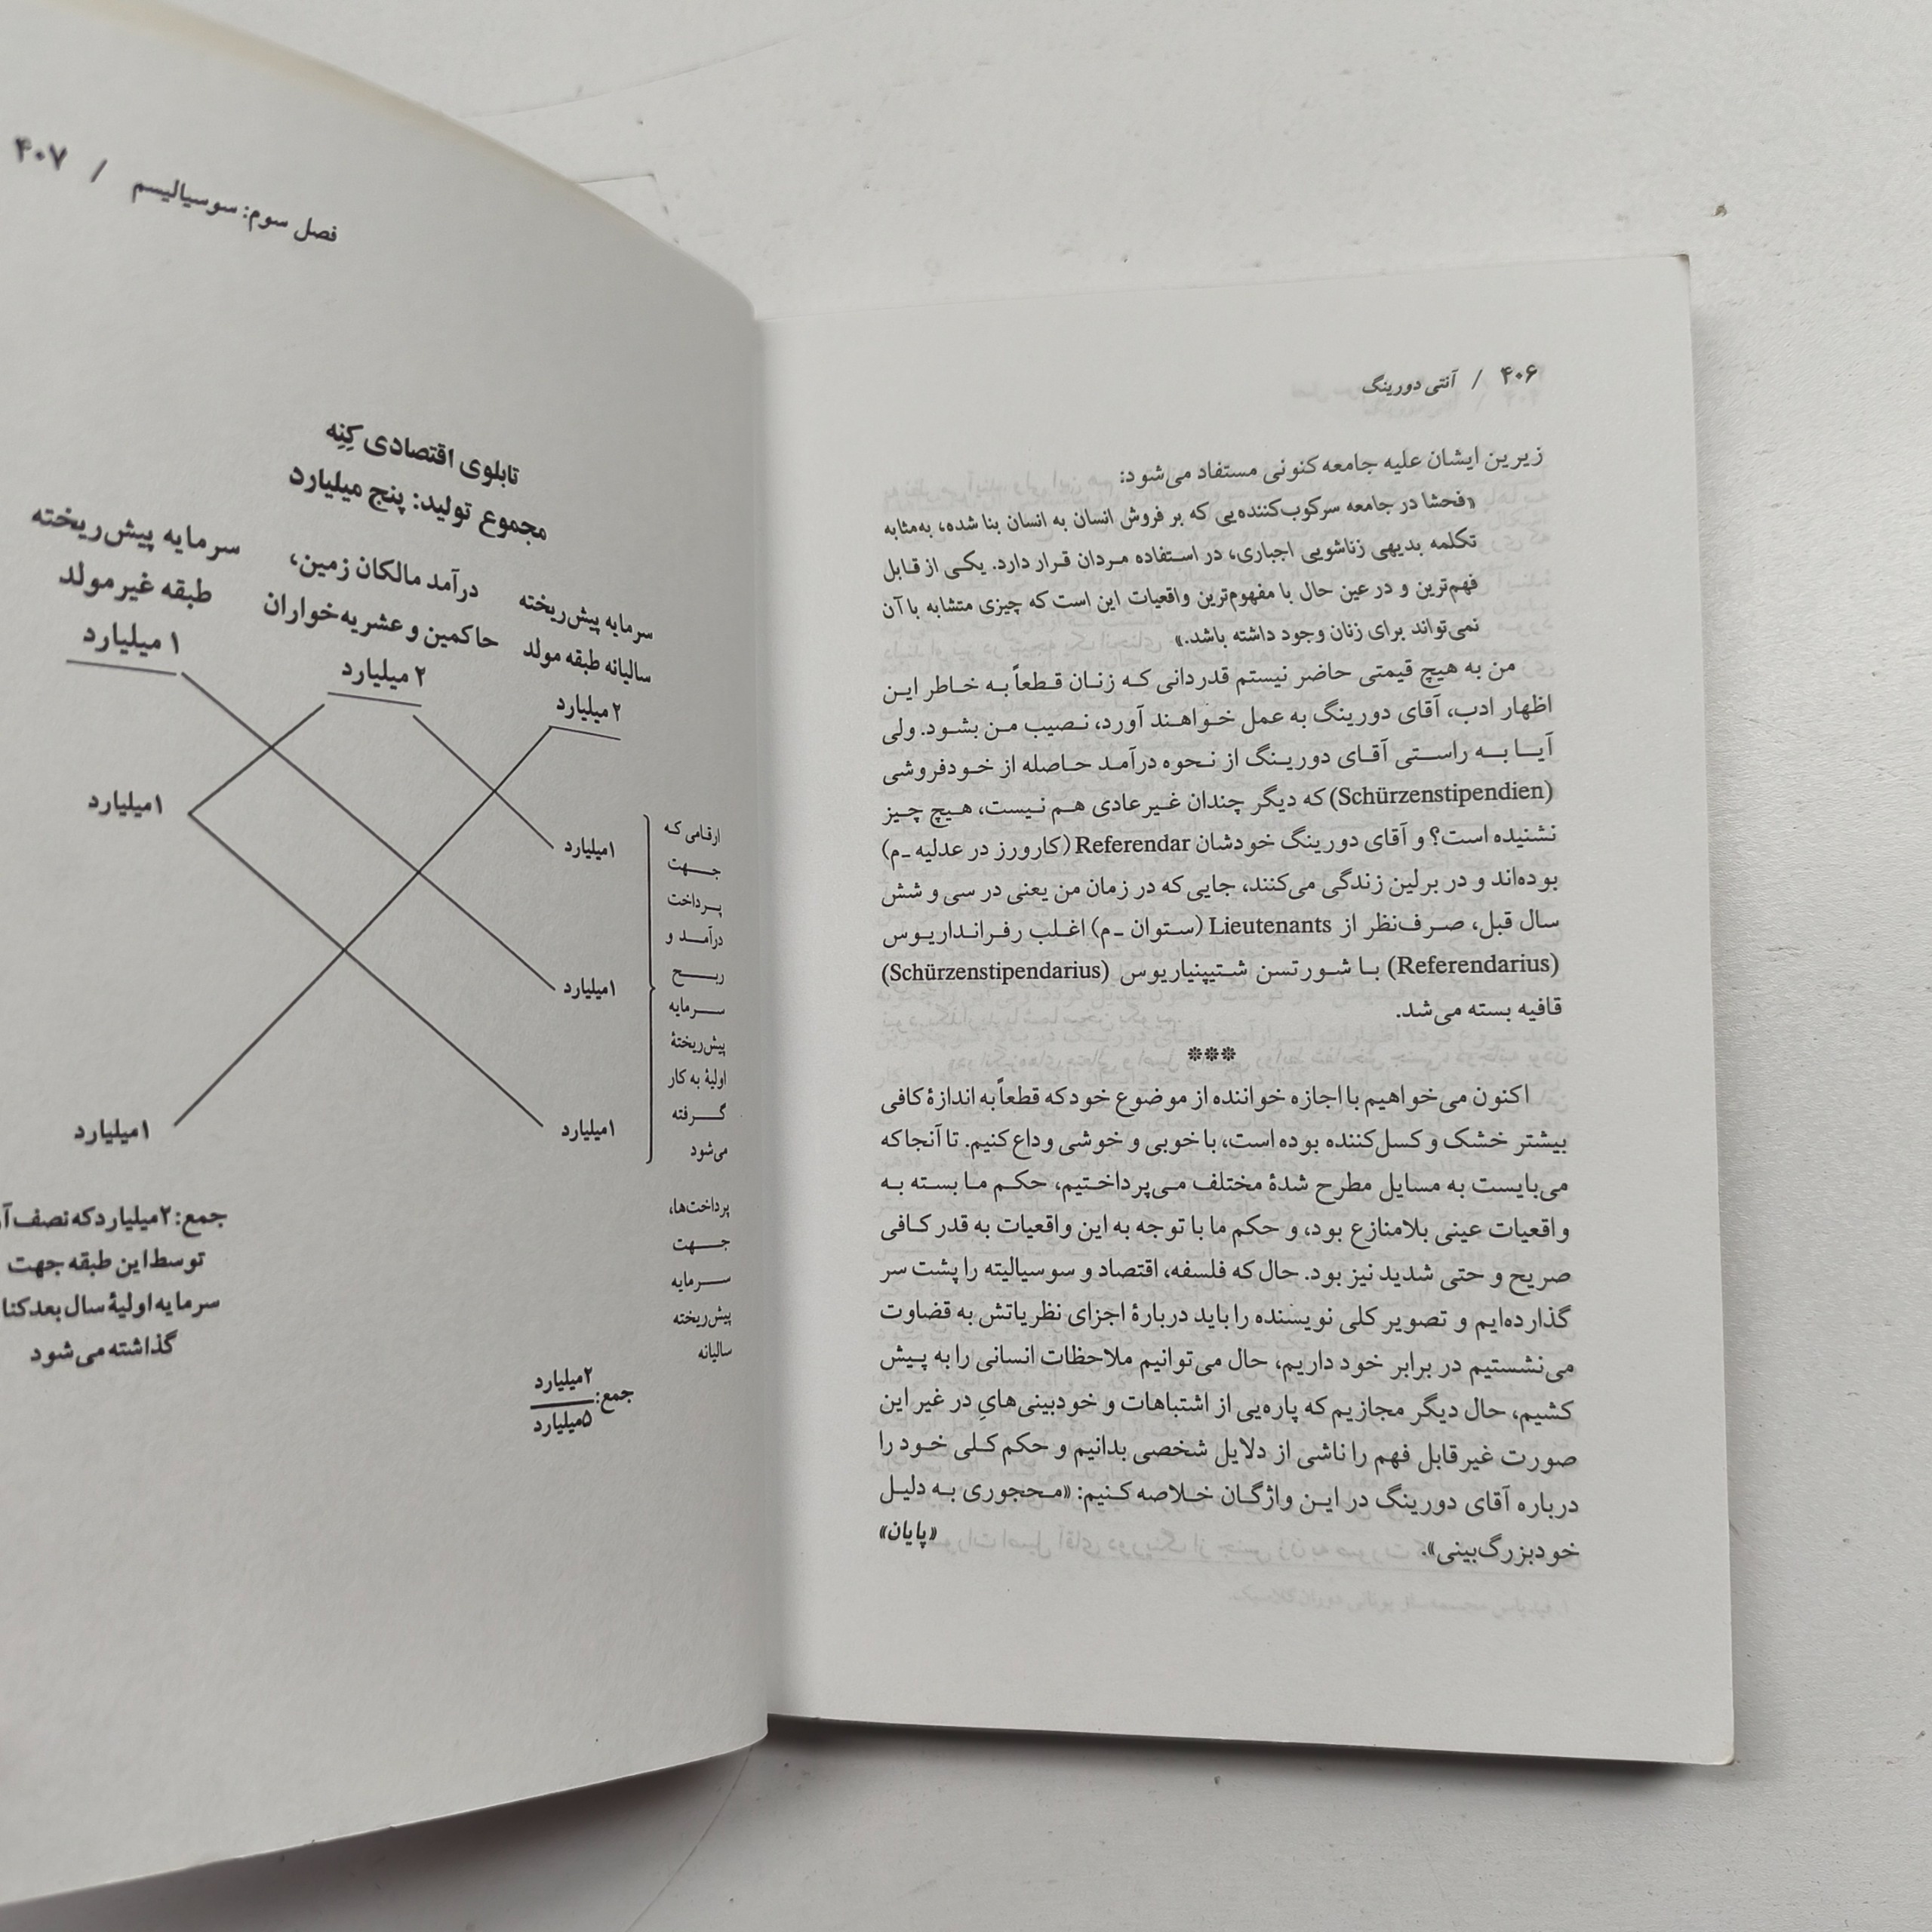 ۴۰۶ / آنتی دورینگ
زیرین ایشان علیه جامعه کنونی مستفاد می‌شود:
«فحشا در جامعه سرکوب‌کننده‌یی که بر فروش انسان به انسان بنا شده، به‌مثابه
تکلمه بدیهی زناشویی اجباری، در استفاده مردان قرار دارد. یکی از قابل
فهم‌ترین و در عین حال با مفهوم‌ترین واقعیات این است که چیزی متشابه با آن
نمی‌تواند برای زنان وجود داشته باشد.»
من به هیچ قیمتی حاضر نیستم قدردانی که زنان قطعاً به خاطر این
اظهار ادب، آقای دورینگ به عمل خواهند آورد، نصیب من بشود. ولی
آیا به راستی آقای دورینگ از نحوه درآمد حاصله از خودفروشی
(Schürzenstipendien) که دیگر چندان غیرعادی هم نیست، هیچ چیز
نشنیده است؟ و آقای دورینگ خودشان Referendar (کارورز در عدلیه ـ م)
بوده‌اند و در برلین زندگی می‌کنند، جایی که در زمان من یعنی در سی و شش
سال قبل، صرف‌نظر از Lieutenants (ستوان ـ م) اغلب رفرانداریوس
(Referendarius) با شورتسن شتیپنیاریوس (Schürzenstipendarius)
قافیه بسته می‌شد.
***
اکنون می‌خواهیم با اجازه خواننده از موضوع خود که قطعاً به اندازهٔ کافی
بیشتر خشک و کسل‌کننده بوده است، با خوبی و خوشی وداع کنیم. تا آنجا که
می‌بایست به مسایل مطرح شدهٔ مختلف می‌پرداختیم، حکم ما بسته به
واقعیات عینی بلامنازع بود، و حکم ما با توجه به این واقعیات به قدر کافی
صریح و حتی شدید نیز بود. حال که فلسفه، اقتصاد و سوسیالیته را پشت سر
گذارده‌ایم و تصویر کلی نویسنده را باید دربارهٔ اجزای نظریاتش به قضاوت
می‌نشستیم در برابر خود داریم، حال می‌توانیم ملاحظات انسانی را به پیش
کشیم، حال دیگر مجازیم که پاره‌یی از اشتباهات و خودبینی‌هایِ در غیر این
صورت غیر قابل فهم را ناشی از دلایل شخصی بدانیم و حکم کلی خود را
درباره آقای دورینگ در این واژگان خلاصه کنیم: «محجوری به دلیل
خودبزرگ‌بینی».
«پایان»
فصل سوم: سوسیالیسم / ۴۰۷
تابلوی اقتصادی کِنِه
مجموع تولید: پنج میلیارد
سرمایه پیش‌ریخته
سالیانه طبقه مولد
۲ میلیارد
درآمد مالکان زمین،
حاکمین و عشریه‌خواران
۲ میلیارد
سرمایه پیش‌ریخته
طبقه غیرمولد
۱ میلیارد
ارقامی که
جهت
پرداخت
درآمد و
ربح
سرمایه
پیش‌ریختهٔ
اولیهٔ به کار
گرفته
می‌شود
۱میلیارد
۱میلیارد
۱میلیارد
۱میلیارد
۱میلیارد
پرداخت‌ها،
جهت
سرمایه
پیش‌ریخته
سالیانه
۲میلیارد
جمع:
۵میلیارد
جمع: ۲میلیارد که نصف
توسط این طبقه جهت
سرمایه اولیهٔ سال بعد
گذاشته می‌شود